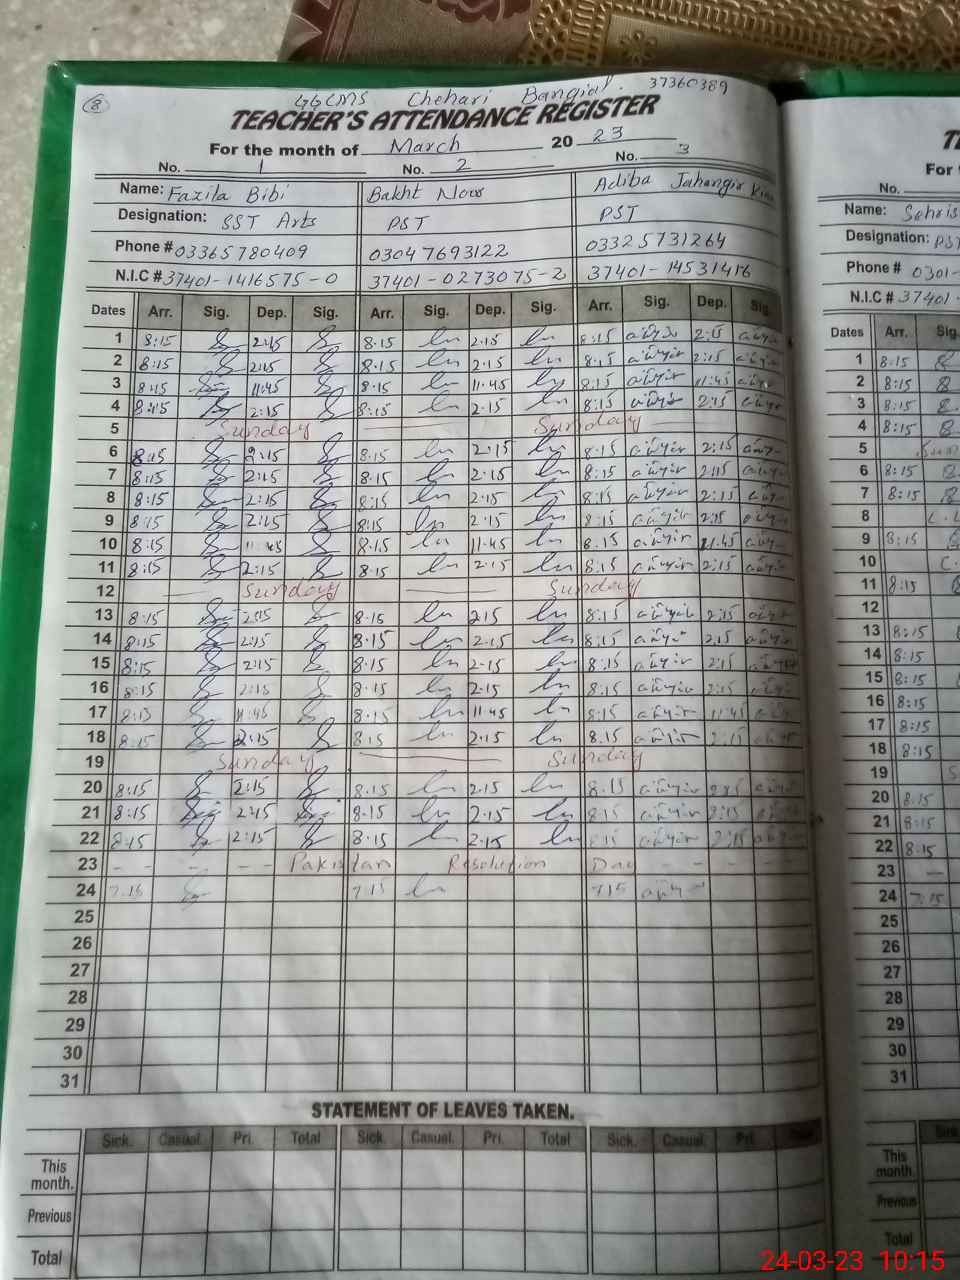 8
GGCMS Chehari Bangial. 37360389
TEACHER'S ATTENDANCE REGISTER
For the month of March 2023
No. 1 No. 2 No. 3
Name: Fazila Bibi Bakht Noor Adiba Jahangir
Designation: SST Arts PST PST
Phone # 03365780409 03047693122 03325731264
N.I.C # 37401-1416575-0 37401-0273075-2 37401-14531416
Dates Arr. Sig. Dep. Sig. Arr. Sig. Dep. Sig. Arr. Sig. Dep. Sig.
1 8:15 2:15 8.15 2.15 8:15 2:15
2 8:15 2:15 8.15 2.15 8.15 2:15
3 8:15 11:45 8.15 11.45 8:15 11:45
4 8:15 2:15 8:15 2.15 8:15 2:15
5 Sunday Sunday
6 8:15 2:15 8.15 2.15 8.15 2:15
7 8:15 2:15 8.15 2.15 8:15 2:15
8 8:15 2:15 8:15 2.15 8:15 2:15
9 8:15 2:15 8:15 2.15 8:15 2:15
10 8:15 11:45 8.15 11.45 8.15 11.45
11 8:15 2:15 8.15 2.15 8:15 2:15
12 Sunday Sunday
13 8:15 2:15 8.15 2.15 8:15 2:15
14 8:15 2:15 8.15 2.15 8:15 2:15
15 8:15 2:15 8.15 2.15 8:15 2:15
16 8:15 2:15 8.15 2.15 8:15 2:15
17 8:15 11:45 8.15 11.45 8:15 11:45
18 8:15 2:15 8.15 2.15 8.15 2:15
19 Sunday Sunday
20 8:15 2:15 8.15 2.15 8.15 2:15
21 8:15 2:15 8.15 2.15 8:15 2:15
22 8:15 2:15 8.15 2.15 8:15 2:15
23 - - - - Pakistan Resolution Day - - - -
24 7:15 7.15 7:15
25
26
27
28
29
30
31
STATEMENT OF LEAVES TAKEN.
Sick. Casual. Pri. Total Sick. Casual. Pri. Total Sick. Casual. Pri. Total
This month.
Previous
Total
For
No.
Name: Sehris
Designation: PST
Phone # 0301-
N.I.C # 37401-
Dates Arr. Sig.
1 8:15
2 8:15
3 8:15
4 8:15
5
6 8:15
7 8:15
8
9 8:15
10
11 8:15
12
13 8:15
14 8:15
15 8:15
16 8:15
17 8:15
18 8:15
19
20 8:15
21 8:15
22 8:15
23 —
24 7:15
25
26
27
28
29
30
31
Sick
This month.
Previous
Total
24-03-23 10:15